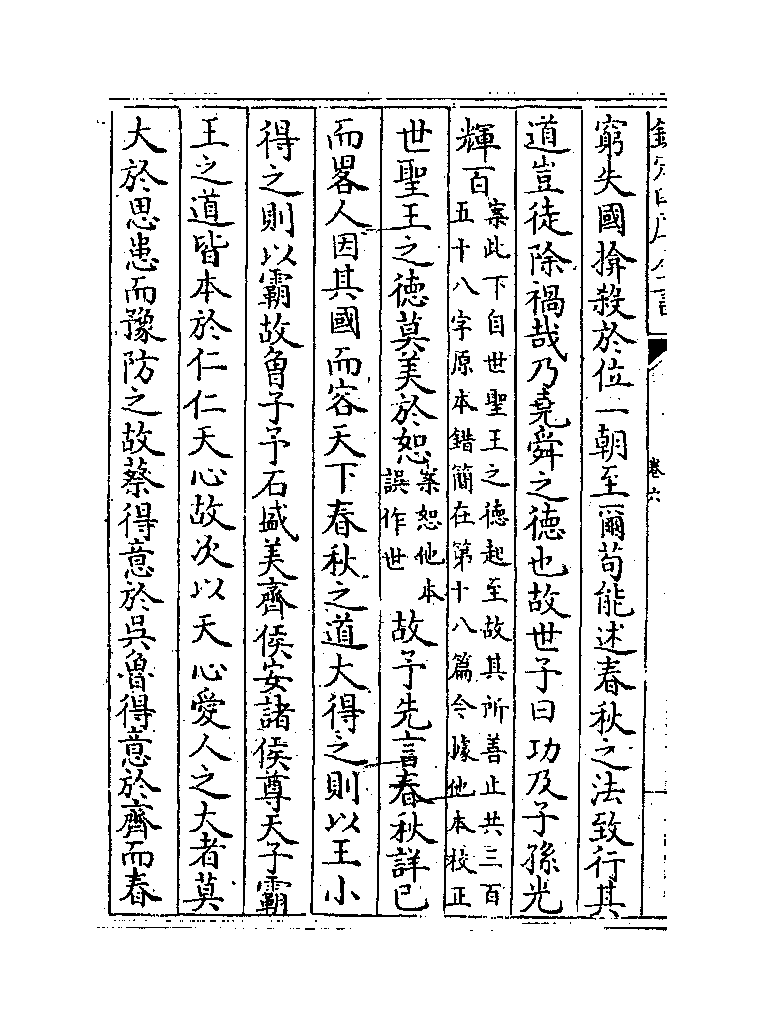 欽定四庫全書
卷六
窮失國揜殺於位一朝至爾苟能述春秋之法致行其
道豈徒除禍哉乃堯舜之徳也故世子曰功及子孫光
輝百案此下自世聖王之徳起至故其所善止共三百五十八字原本錯簡在第十八篇今據他本校正
世聖王之徳莫美於恕案恕他本誤作世故予先言春秋詳已
而畧人因其國而容天下春秋之道大得之則以王小
得之則以霸故曽子予石盛美齊侯安諸侯尊天子霸
王之道皆本於仁仁天心故次以天心愛人之大者莫
大於思患而豫防之故蔡得意於吳魯得意於齊而春